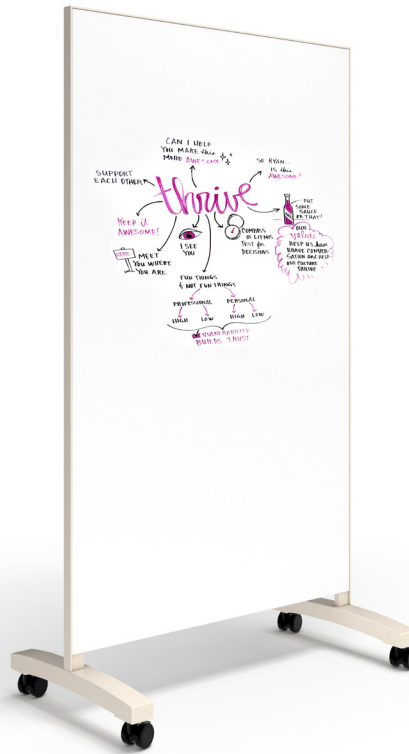 CAN I HELP
YOU MAKE this
MORE AWESOME
SO RYAN...
IS this
AWESOME?
SUPPORT
EACH OTHER
thrive
PUT
SOME
SAUCE
ON THAT!
KEEP it
AWESOME!
I SEE
YOU
COMPASS
OR LITMUS
TEST for
DECISIONS
OUR
VALUES
HELP US have
BRAVE CONVER-
SATION AND HELP
OUR CULTURE
THRIVE
HERE
MEET
YOU WHERE
YOU ARE
FUN THINGS
& NOT FUN THINGS
PROFESSIONAL
PERSONAL
HIGH LOW HIGH LOW
VULNERABILITY
BUILDS TRUST